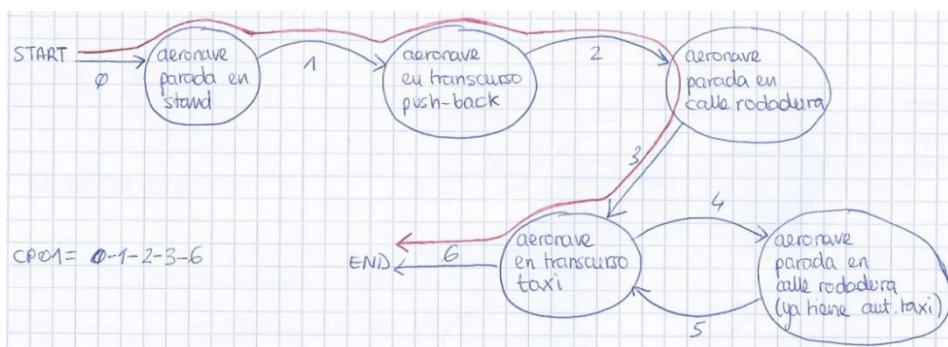 START
0
aeronave
parada en
stand
1
aeronave
en transcurso
push-back
2
aeronave
parada en
calle rodadura
3
CP01= 0-1-2-3-6
END
6
aeronave
en transcurso
taxi
4
5
aeronave
parada en
calle rodadura
(ya tiene aut. taxi)